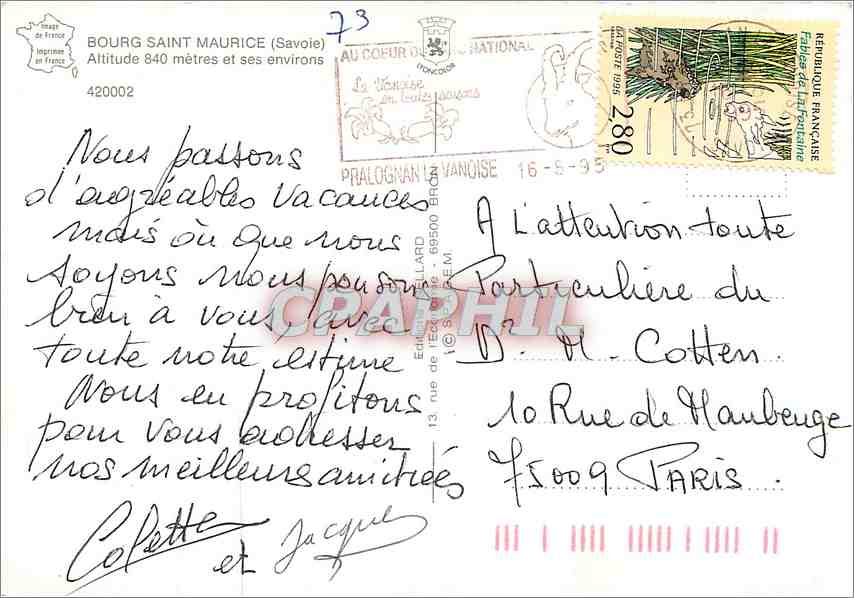 Image
de France
Imprimée
en France
BOURG SAINT MAURICE (Savoie)
Altitude 840 mètres et ses environs
420002
73
LYONCOLOR
AU COEUR DU NATIONAL
La Vanoise
en toutes saisons
PRALOGNAN LA VANOISE 16-8-95
RÉPUBLIQUE FRANÇAISE
Fables de La Fontaine
LA POSTE 1995
2,80
Nous passons
d'agréables vacances
mais où que nous
soyons nous pensons
bien à vous, avec
toute notre estime
Nous en profitons
pour vous adresser
nos meilleurs amitiés
Colette
et Jacques
Editions ELLARD
13, rue de l'Ecorcerie - 69500 BRON
© S.P.A.D.E.M.
CPAPHIL
A L'attention toute
Particulière du
Dr M. Cotten
10 Rue de Maubeuge
75009 PARIS